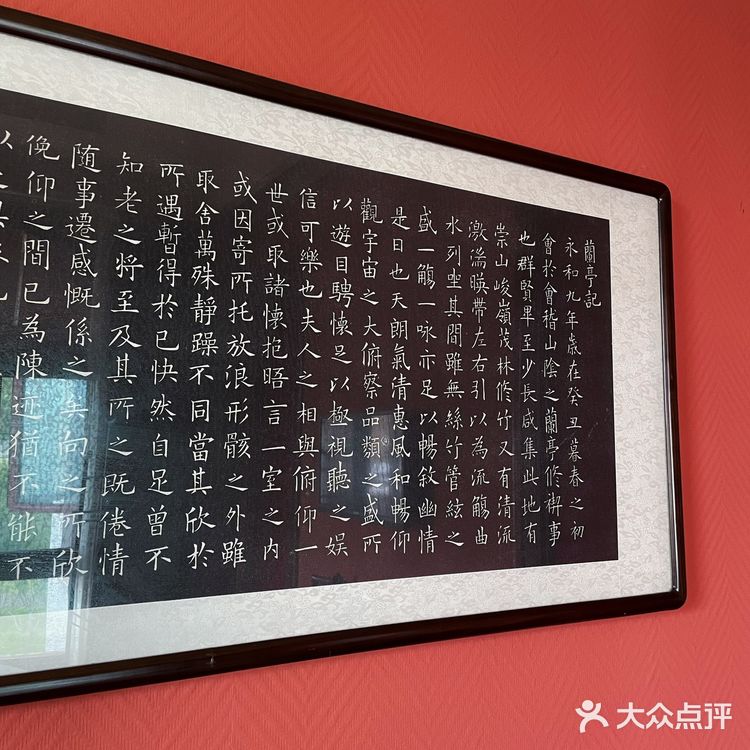 蘭亭記
永和九年歲在癸丑暮春之初
會於會稽山陰之蘭亭修禊事
也群賢畢至少長咸集此地有
崇山峻嶺茂林修竹又有清流
激湍暎帶左右引以為流觴曲
水列坐其間雖無絲竹管絃之
盛一觴一咏亦足以暢敘幽情
是日也天朗氣清惠風和暢仰
觀宇宙之大俯察品類之盛所
以遊目騁懷足以極視聽之娛
信可樂也夫人之相與俯仰一
世或取諸懷抱晤言一室之內
或因寄所托放浪形骸之外雖
取舍萬殊靜躁不同當其欣於
所遇暫得於己快然自足曾不
知老之將至及其所之既倦情
隨事遷感慨係之矣向之所欣
俛仰之間已為陳迹猶不能不
以之
大众点评